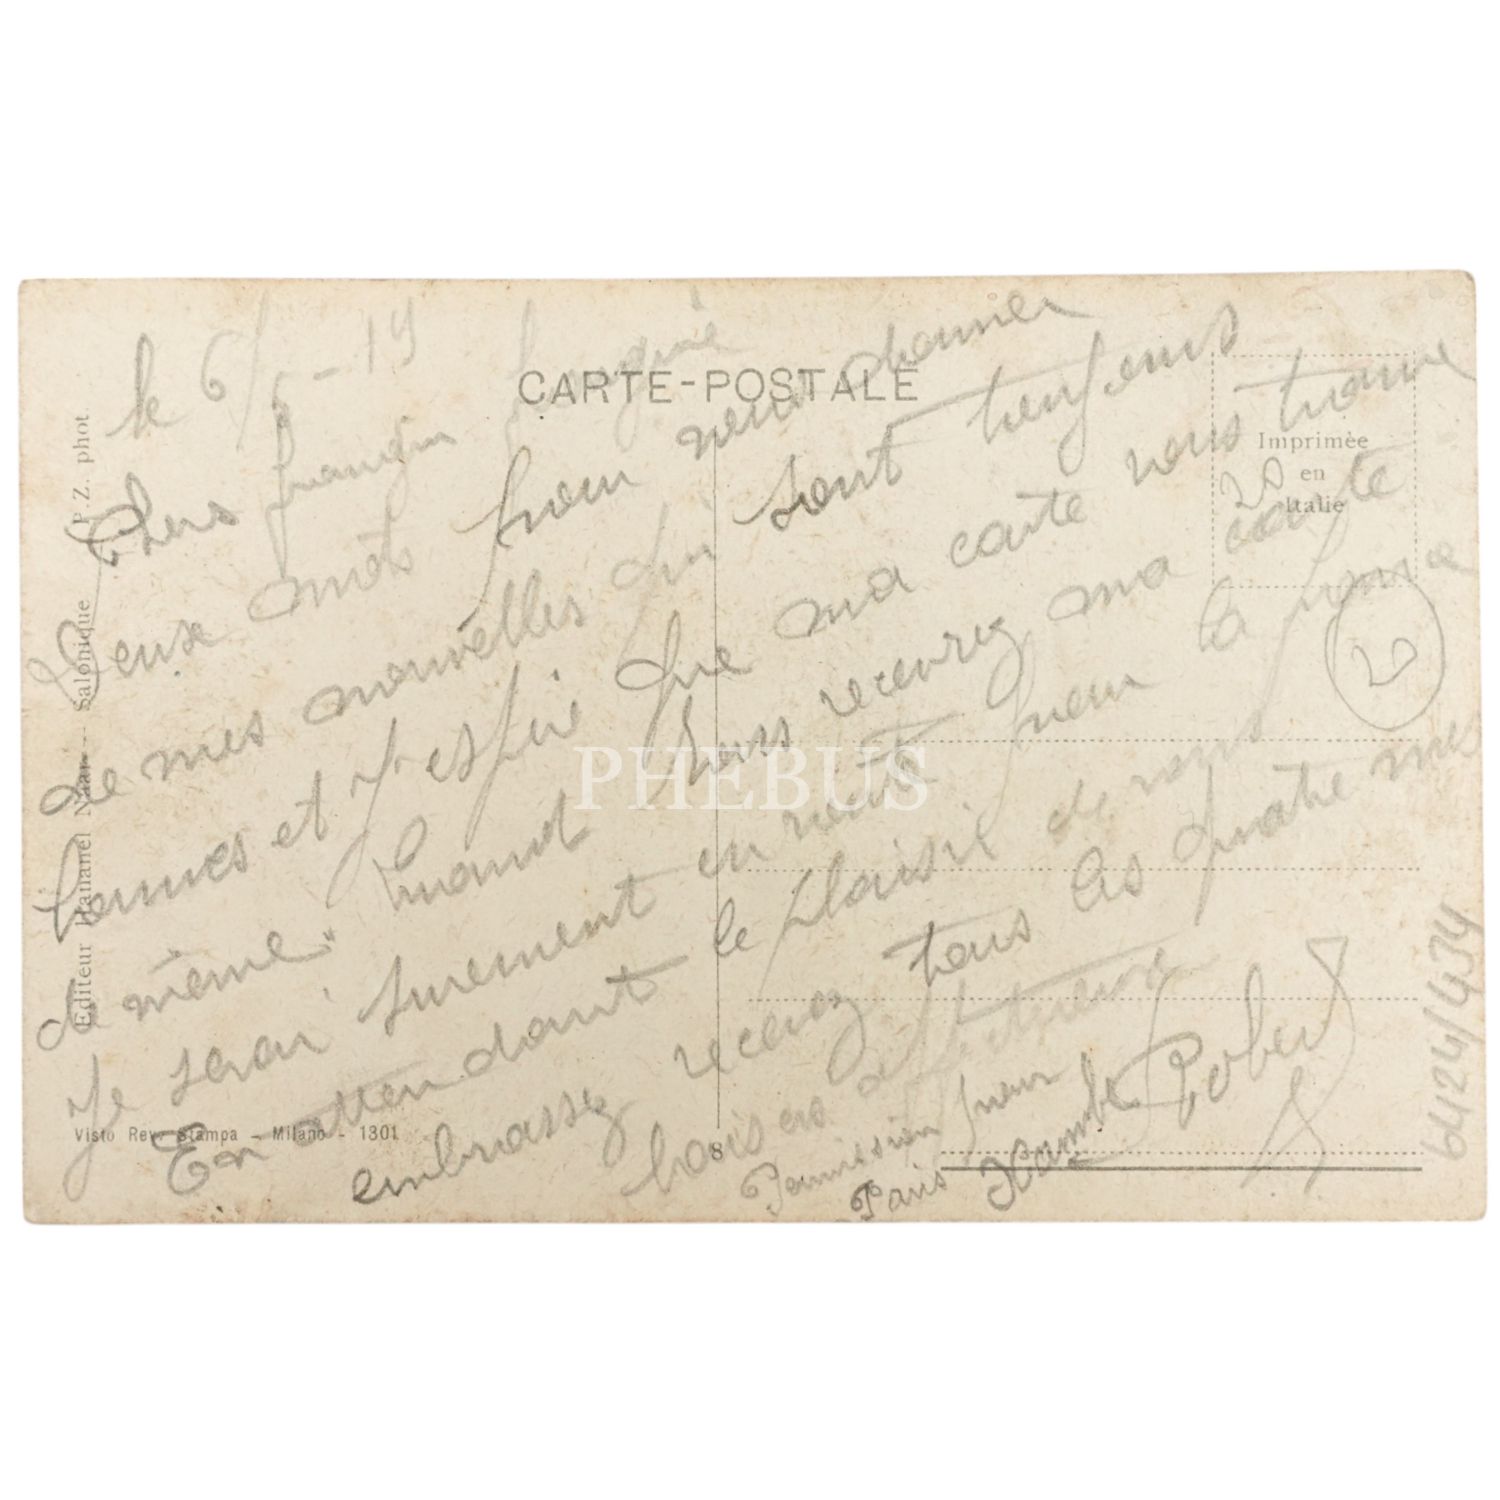 le 6/6-19
Chers frangin frangine
Deux mots pour vous donner
de mes nouvelles qui sont toujours
bonnes et j'espire que ma carte vous trouve
de même. Quand vous recevrez ma carte
Je serai surement en route pour la
En attendant le plaisir de vous
embrassez recevez tous les quatre mes
baisers affectueux
Permission pour
Paris
Robert
CARTE-POSTALE
Imprimèe
en
Italie
Editeur Hananel Naar — Salonique P.Z. phot
Visto Rev. Stampa - Milano - 1301
8
20
6424/434
PHEBUS